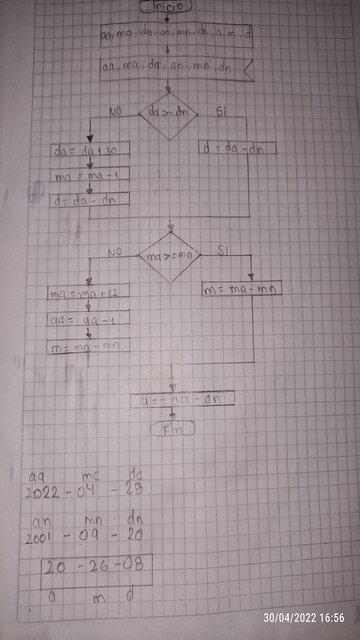 Inicio
aa, ma, da, an, mn, dn, a, m, d
aa, ma, da, an, mn, dn
NO
da>=dn
Si
da = da+30
ma = ma-1
d = da-dn
d = da-dn
NO
ma>=mn
SI
ma = ma+12
aa = aa-1
m = ma-mn
m = ma-mn
a = aa - an
Fin
aa ma da
2022-04-28
an mn dn
2001-09-20
20-26-08
a m d
30/04/2022 16:56